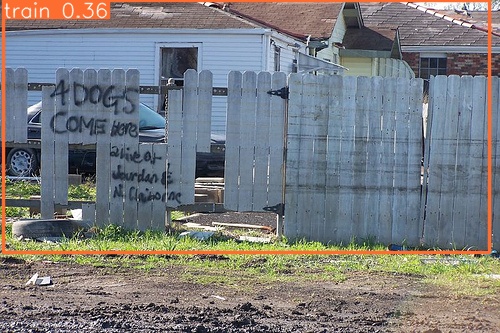 train 0.36
4 DOGS
COME here
alive at
Jourdan &
N. Claiborne